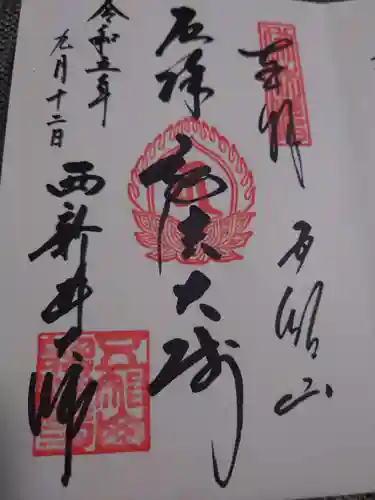 奉拝
五智山
厄除
弘法大師
令和五年
九月十二日
西新井大師